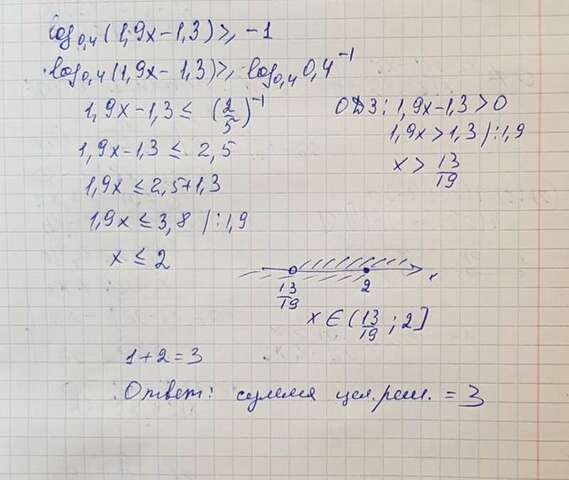 log₀,₄(1,9x-1,3)≥-1
log₀,₄(1,9x-1,3)≥ log₀,₄ 0,4⁻¹
1,9x-1,3 ≤ (2/5)⁻¹
1,9x-1,3 ≤ 2,5
1,9x ≤ 2,5+1,3
1,9x ≤ 3,8 |:1,9
x ≤ 2
ОДЗ: 1,9x-1,3>0
1,9x>1,3 |:1,9
x > 13/19
13/19 2 x
x ∈ (13/19 ; 2]
1+2=3
Ответ: сумма цел. реш. = 3